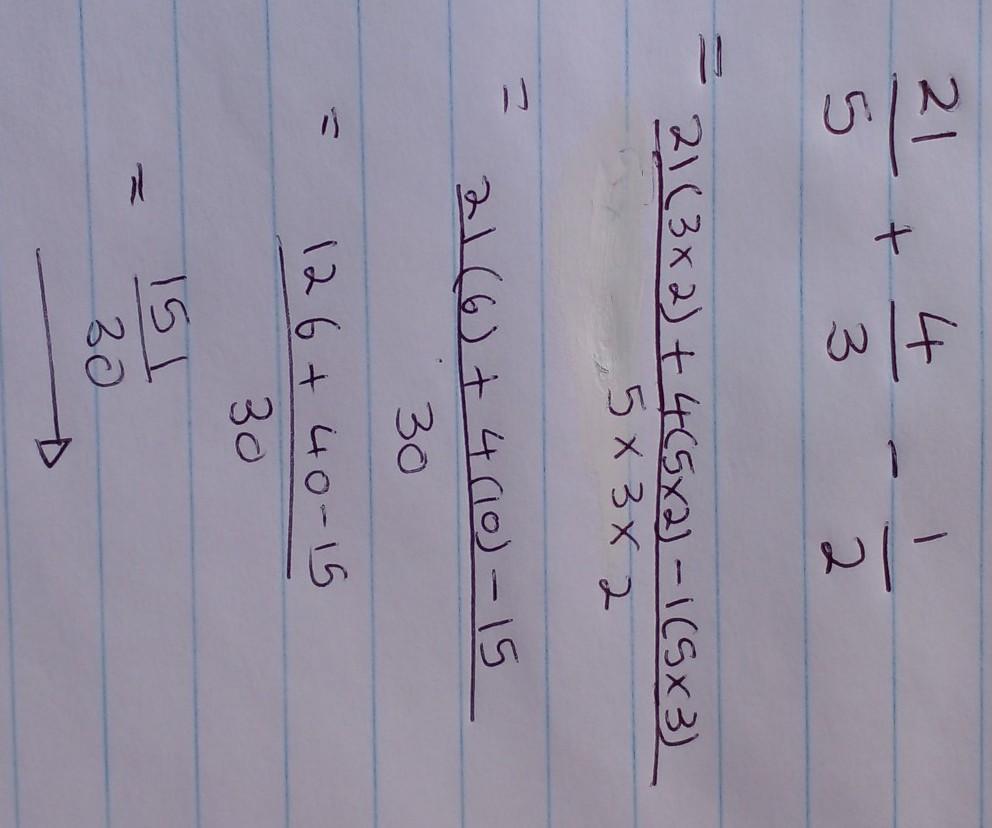 21/5 + 4/3 - 1/2
= 21(3x2) + 4(5x2) - 1(5x3)
5 x 3 x 2
= 21(6) + 4(10) - 15
30
= 126 + 40 - 15
30
= 151
30